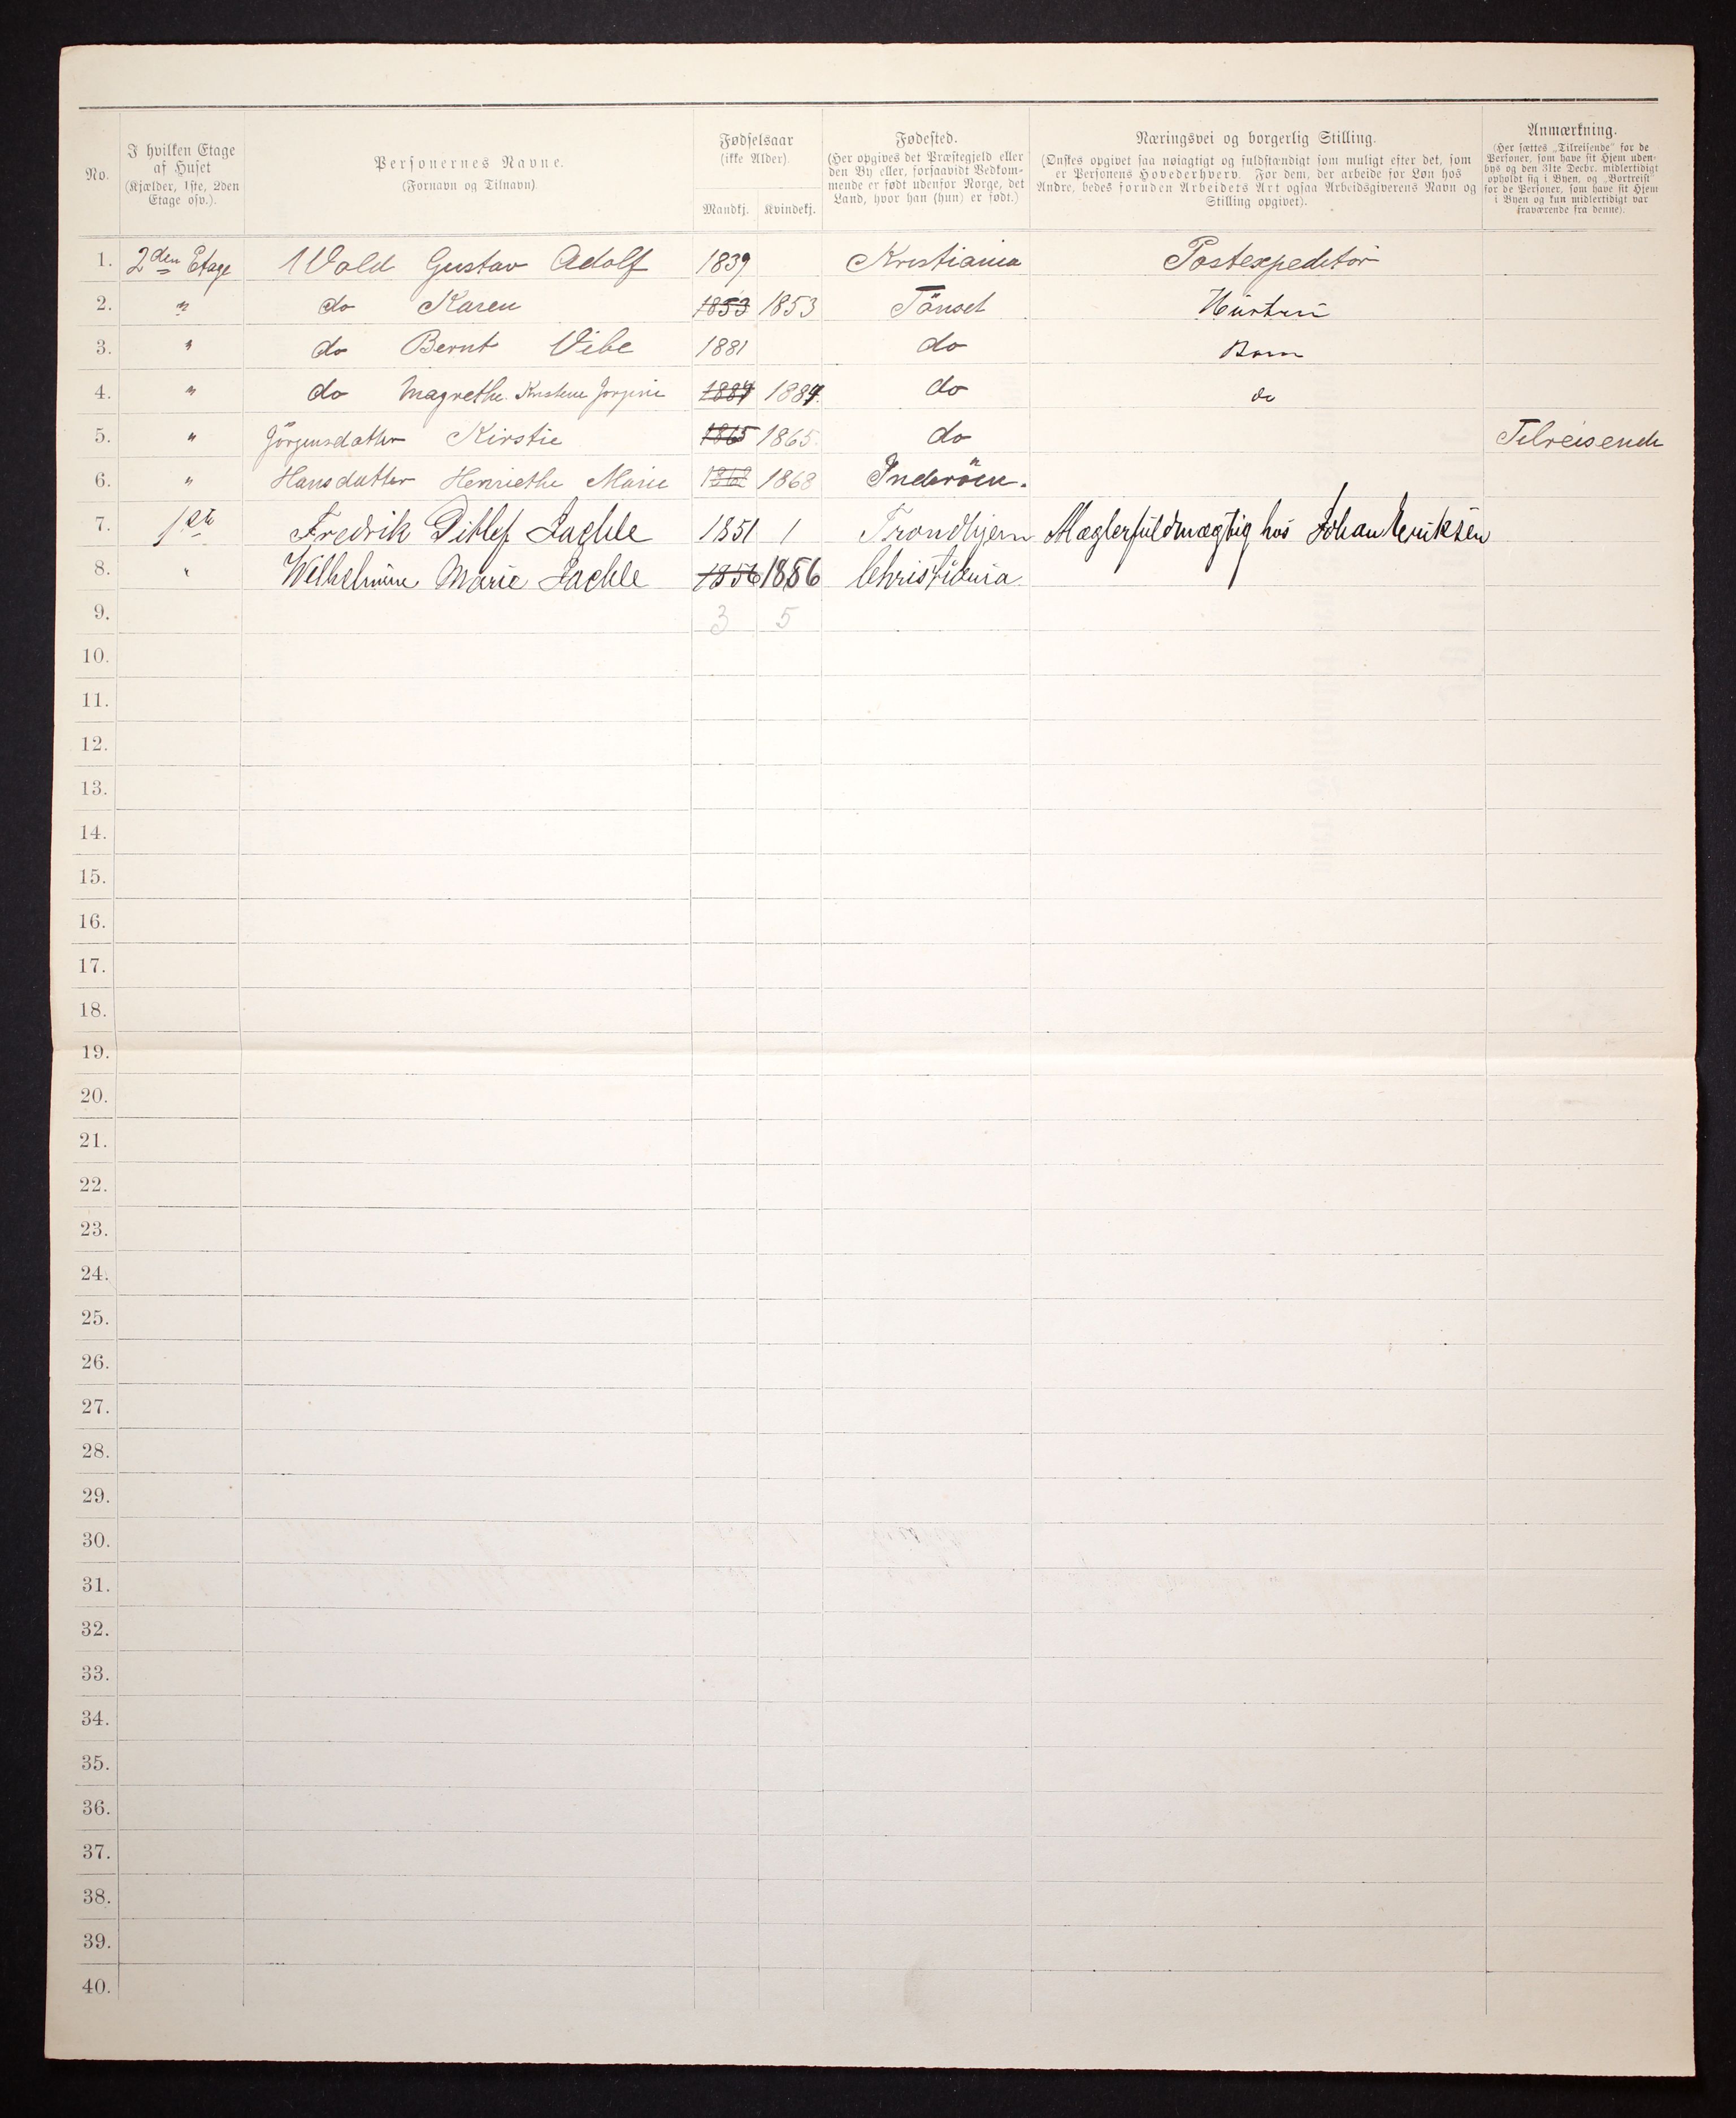 No.
I hvilken Etage af Huset (Kjælder, 1ste, 2den Etage osv.).
Personernes Navne. (Fornavn og Tilnavn)
Fødselsaar (ikke Alder).
Mandkj. Kvindekj.
Fødested. (Her opgives det Præstegjeld eller den By eller, forsaavidt Vedkommende er født udenfor Norge, det Land, hvor han (hun) er født.)
Næringsvei og borgerlig Stilling. (Ønskes opgivet saa nøiagtigt og fuldstændigt som muligt efter det, som er Personens Hovederhverv. For dem, der arbeide for Løn hos Andre, bedes foruden Arbeidets Art ogsaa Arbeidsgiverens Navn og Stilling opgivet).
Anmærkning. (Her sættes „Tilreisende" for de Personer, som have sit Hjem udenbys og den 31te Decbr. midlertidigt opholdt sig i Byen, og „Bortreist" for de Personer, som have sit Hjem i Byen og kun midlertidigt var fraværende fra denne).
1. 2den Etage Wold Gustav Adolf 1839 Kristiania Postexpeditør
2. " do Karen 1853 1853 Tönset Hustru
3. " do Bernt Vibe 1881 do Barn
4. " do Magrethe Kristine Jorgine 1884 1884. do do
5. " Jörgensdatter Kirstie 1865 1865. do Tilreisende
6. " Hansdatter Henriethe Marie 1868 1868 Inderöen.
7. 1ste Fredrik Ditlef Jackle 1851 1 Trondhjem Mæglerfuldmægtig hos Johan Henriksen
8. " Wilhelmine Marie Jackle 1856 1856 Christiania
9. 3 5
10.
11.
12.
13.
14.
15.
16.
17.
18.
19.
20.
21.
22.
23.
24.
25.
26.
27.
28.
29.
30.
31.
32.
33.
34.
35.
36.
37.
38.
39.
40.